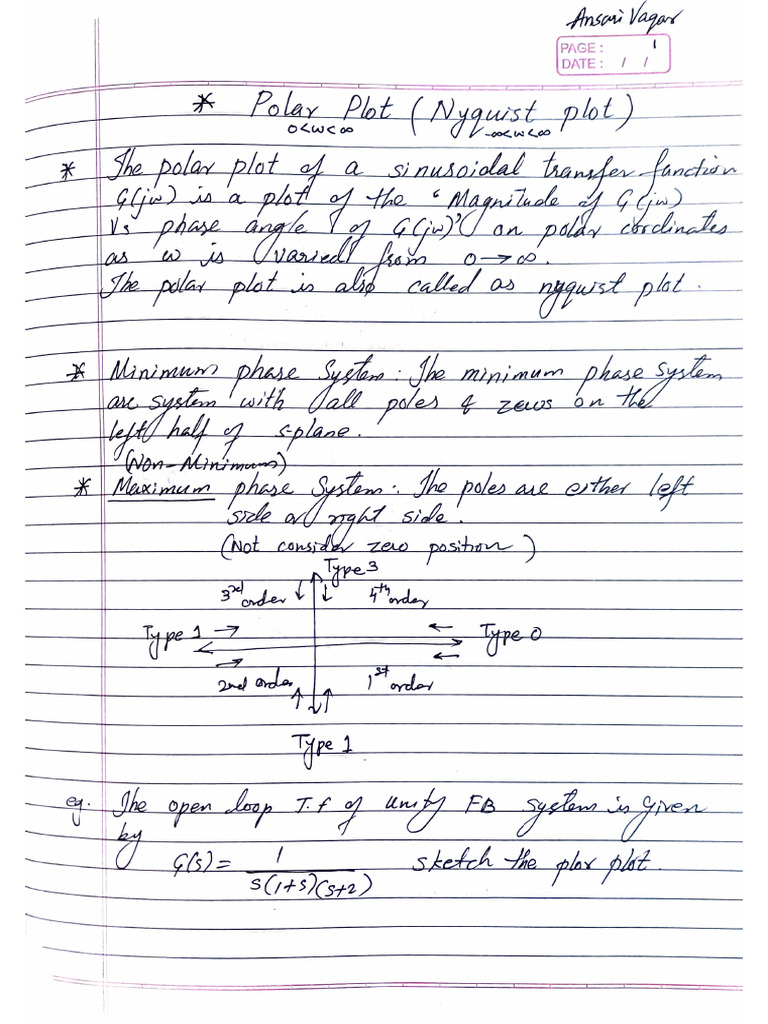 Ansari Vaqar
PAGE: 1
DATE: / /
* Polar Plot (Nyquist plot)
0<ω<∞ -∞<ω<∞
* The polar plot of a sinusoidal transfer function
G(jω) is a plot of the "Magnitude of G(jω)
Vs phase angle of G(jω)" on polar cordinates
as ω is varied from 0→∞.
The polar plot is also called as nyquist plot.
* Minimum phase System: The minimum phase system
are system with all poles & zeros on the
left half of s-plane.
(Non-Minimum)
* Maximum phase System:. The poles are either left
side or right side.
(Not consider zero position)
Type 3
3rd order 4th order
Type 1 Type 0
2nd order 1st order
Type 1
eg. The open loop T.f of unity FB system is Given
by
G(s) = 1 / s(1+s)(s+2) sketch the plor plot.